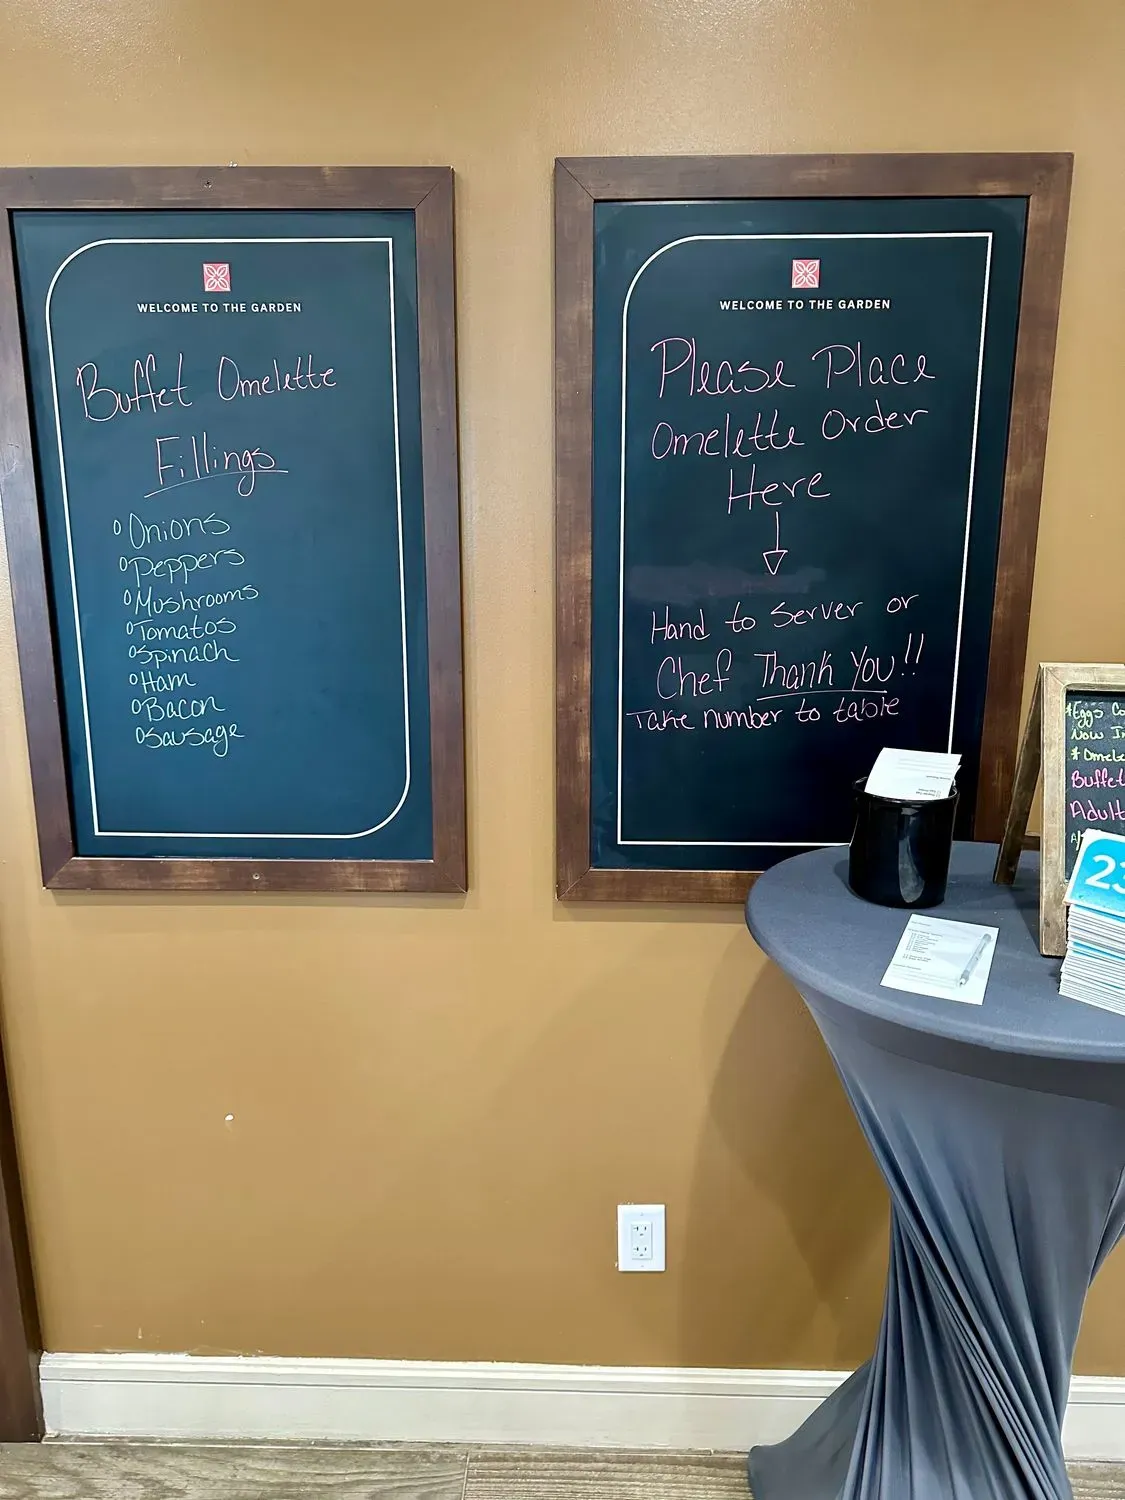 WELCOME TO THE GARDEN
Buffet Omelette
Fillings
Onions
Peppers
Mushrooms
Tomatos
Spinach
Ham
Bacon
Sausage
WELCOME TO THE GARDEN
Please Place
Omelette Order
Here
Hand to Server or
Chef Thank You!!
Take number to table
Eggs
Now
Buffet
Adult